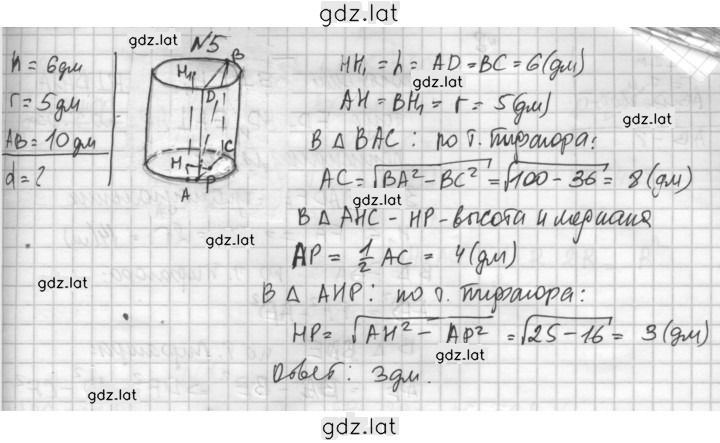 gdz.lat
gdz.lat
№5
h = 6дм
r = 5дм
AB = 10дм
d = ?
B
H₁
D
H
C
A
P
HH₁ = h = AD = BC = 6(дм)
gdz.lat
AH = BH₁ = r = 5(дм)
gdz.lat
В Δ BAC : по т. Пифагора:
AC = √BA² − BC² = √100 − 36 = 8 (дм)
gdz.lat
В Δ AHC − HP − высота и медиана
gdz.lat
AP = ½ AC = 4(дм)
gdz.lat
gdz.lat
В Δ AHP : по т. Пифагора:
HP = √AH² − AP² = √25 − 16 = 3 (дм)
gdz.lat
Ответ : 3дм.
gdz.lat
gdz.lat